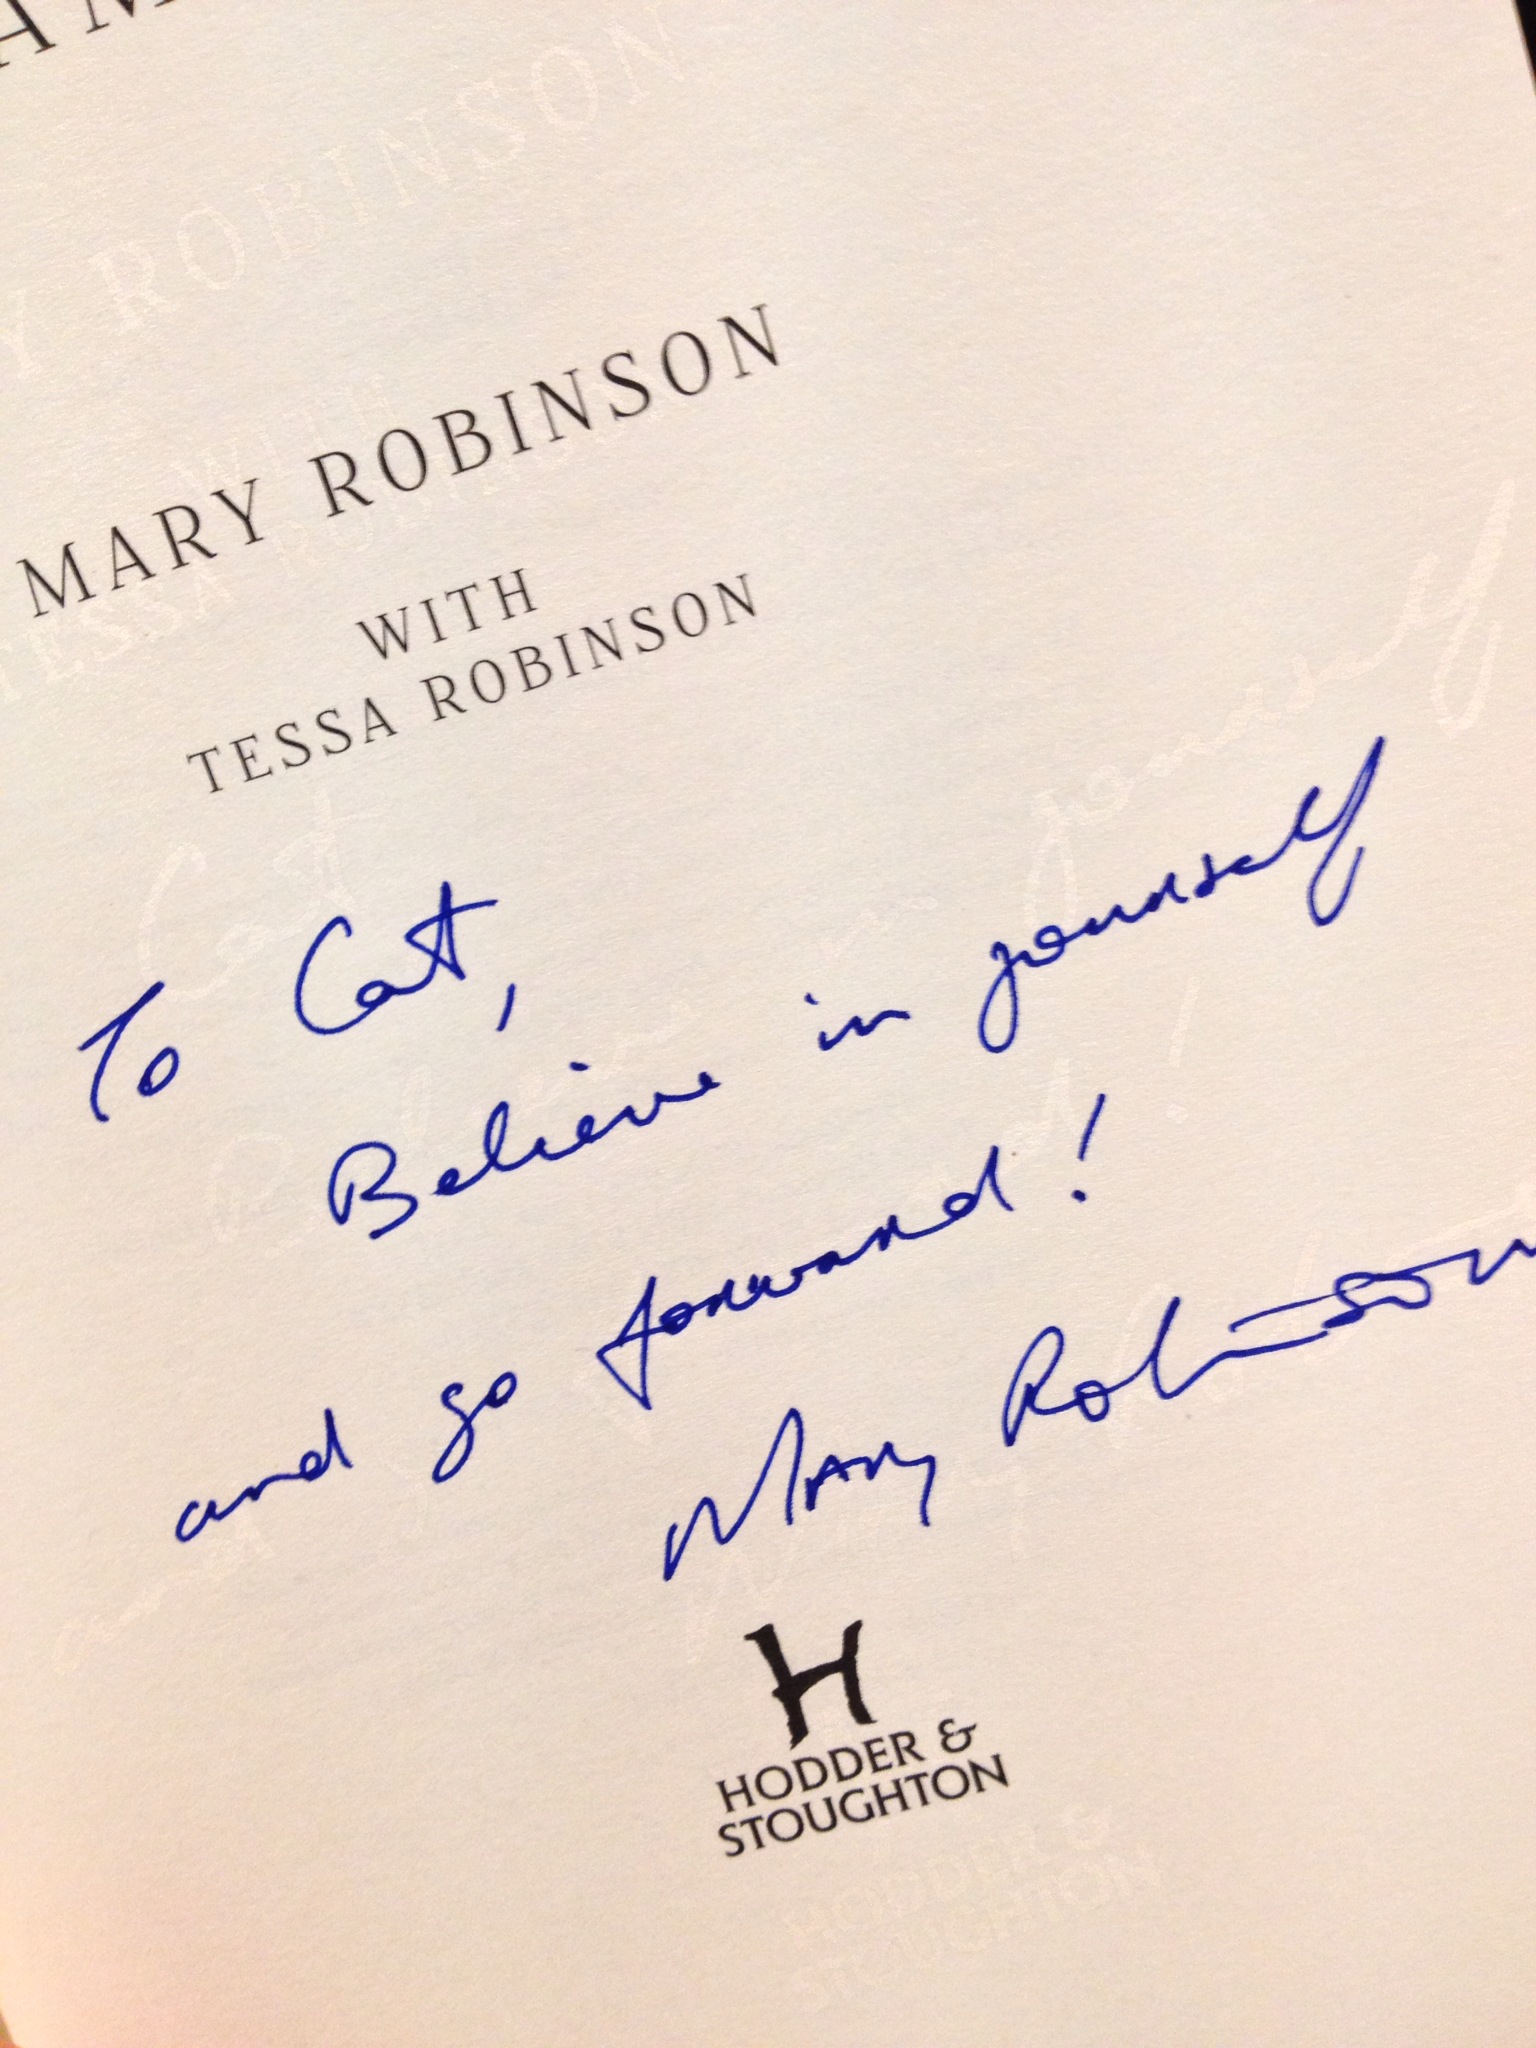 MARY ROBINSON
WITH
TESSA ROBINSON
To Cat,
Believe in yourself
and go forward!
Mary Robinson
H
HODDER &
STOUGHTON